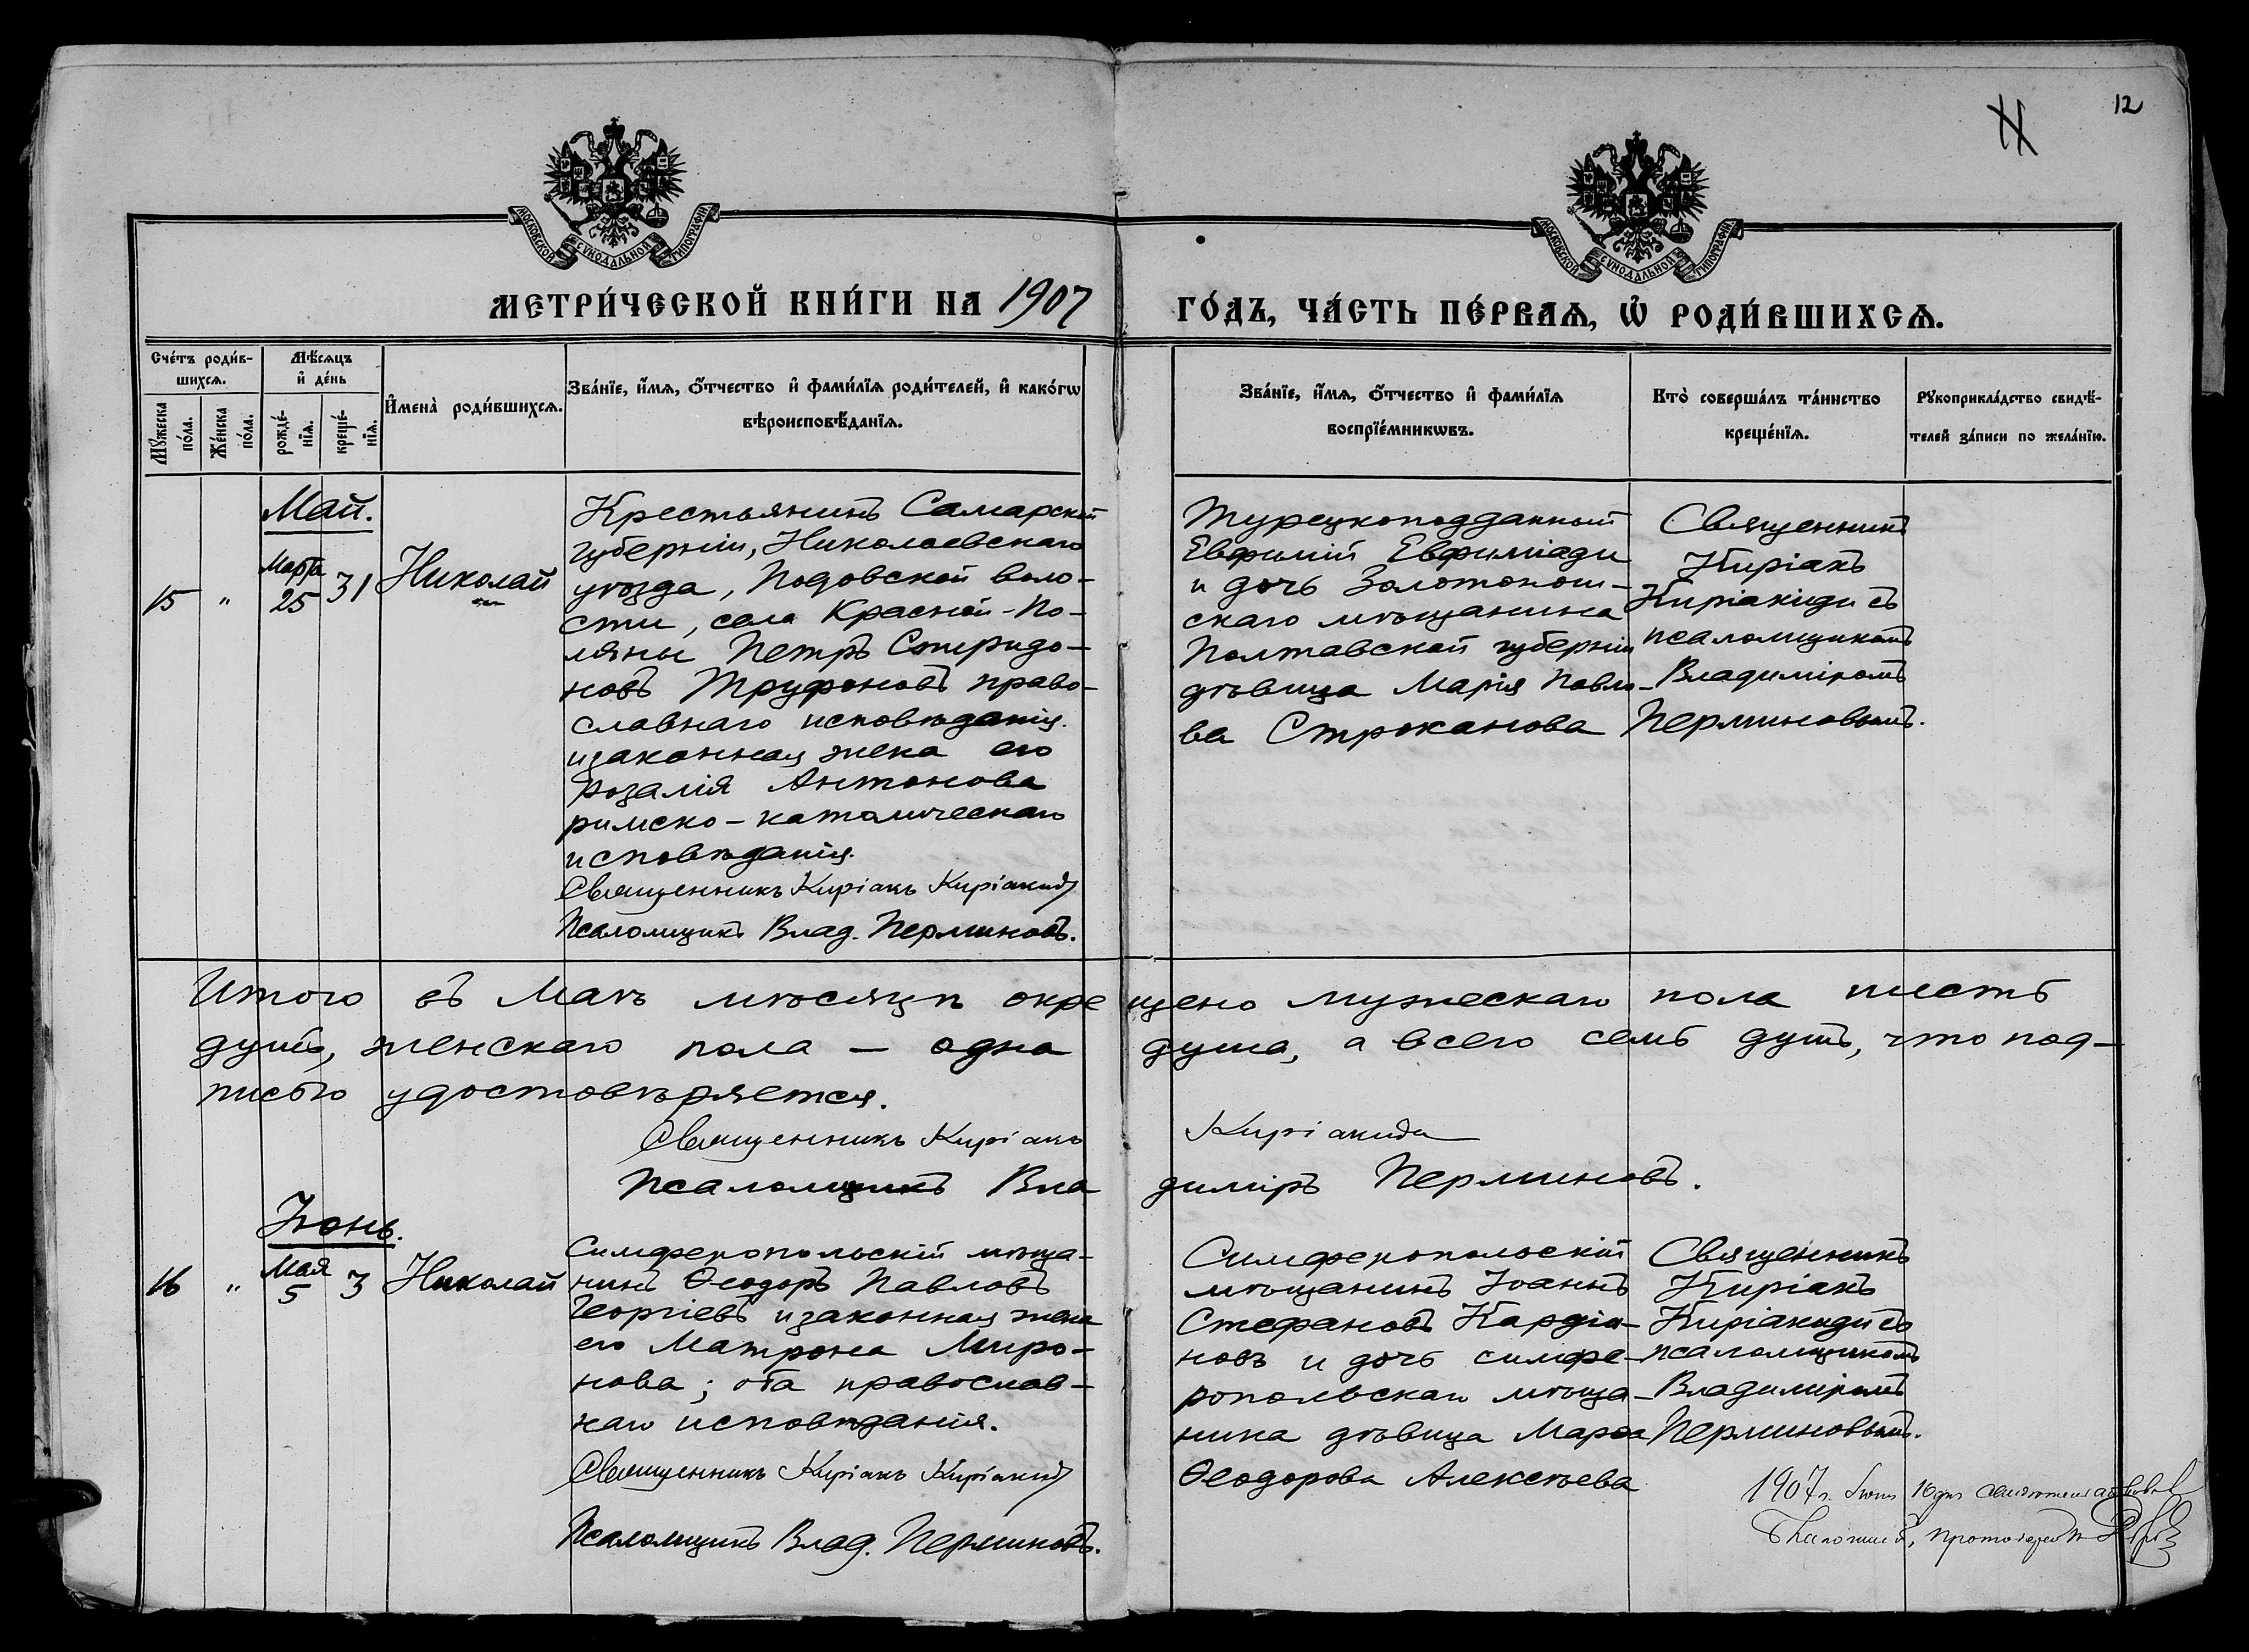 12
МОСКОВСКОЙ СѴНОДАЛЬНОЙ ТИПОГРАФІИ
МОСКОВСКОЙ СѴНОДАЛЬНОЙ ТИПОГРАФІИ
МЕТРИ́ЧЕСКОЙ КНИ́ГИ НА 1907 ГО́ДЪ, ЧА́СТЬ ПЕ́РВАЯ, Ѡ РОДИ́ВШИХСѦ.
Сче́тъ роди́в-
шихсѧ.
Мꙋ́жеска
по́ла.
Же́нска
по́ла.
Мѣ́сѧцъ
и҆ де́нь
рожде́-
нїѧ.
креще́-
нїѧ.
И҆мена̀ роди́вшихсѧ.
Зва́нїе, и҆́мѧ, ѻ҆́тчество и҆ фами́лїѧ роди́телей, и҆ како́гѡ
вѣроисповѣ́данїѧ.
Зва́нїе, и҆́мѧ, ѻ҆́тчество и҆ фами́лїѧ
воспрїе́мникѡвъ.
Кто̀ соверша́лъ та́инство
креще́нїѧ.
Рꙋкоприкла́дство свидѣ́-
телей за́писи по жела́нїю.
Май.
15 " Марта 25 31 Николай
Крестьянинъ Самарской
губерніи, Николаевскаго
уѣзда, Подовской воло-
сти, села Красной-По-
ляны Петръ Спиридо-
новъ Труфоновъ право-
славнаго исповѣданія.
и законная жена его
Розалія Антонова
римско-католическаго
исповѣданія.
Священникъ Киріакъ Киріакиди
Псаломщикъ Влад. Перминовъ.
Турецкоподданный
Евфимій Евфиміади
и дочь Золотонош-
скаго мѣщанина
Полтавской губерніи
дѣвица Марія Павло-
ва Строканова
Священникъ
Киріакъ
Киріакиди съ
псаломщикомъ
Владиміромъ
Перминовымъ.
Итого въ Маѣ мѣсяцѣ окрещено мужескаго пола шесть
душъ, женскаго пола — одна душа, а всего семь душъ, что под-
писью удостовѣряется.
Священникъ Киріакъ Киріакиди
Псаломщикъ Владиміръ Перминовъ.
Іюнь.
16 " Мая 5 3 Николай
Симферопольскій мѣща-
нинъ Ѳеодоръ Павловъ
Георгіевъ и законная жена
его Матрона Миро-
нова; оба православ-
наго исповѣданія.
Священникъ Киріакъ Киріакиди
Псаломщикъ Влад. Перминовъ.
Симферопольскій
мѣщанинъ Іоаннъ
Стефановъ Кардіа-
новъ и дочь симфе-
ропольскаго мѣща-
нина дѣвица Марѳа
Ѳеодорова Алексѣева
Священникъ
Киріакъ
Киріакиди съ
псаломщикомъ
Владиміромъ
Перминовымъ.
1907 г. Іюня 16 дня свидѣтельствовалъ
Благочинный, протоіерей